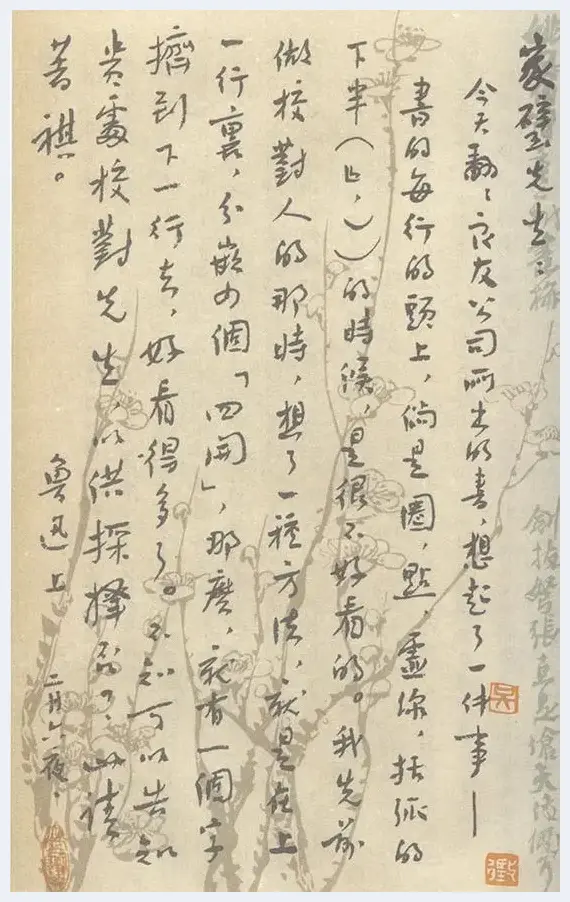 家璧先生:
今天翻〻良友公司所出的書,想起了一件事——
書的每行的頭上,倘是圈,點,虛線,括弧的
下半(﹂,))的時候,是很不好看的。我先前
做校對人的那時,想了一種方法,就是在上
一行裏,分嵌四個「四開」,那麽,就有一個字
擠到下一行去,好看得多了。不知可以告知
貴處校對先生,以供採擇否?此請
著祺。
魯迅 上 二月六夜。